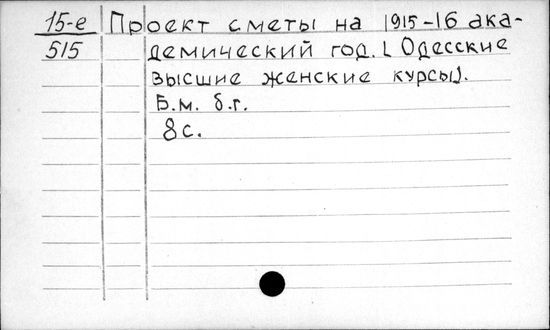 15-е Проект сметы на 1915-16 ака-
515 демический год. (Одесские
высшие женские курсы).
Б.м. б.г.
8с.